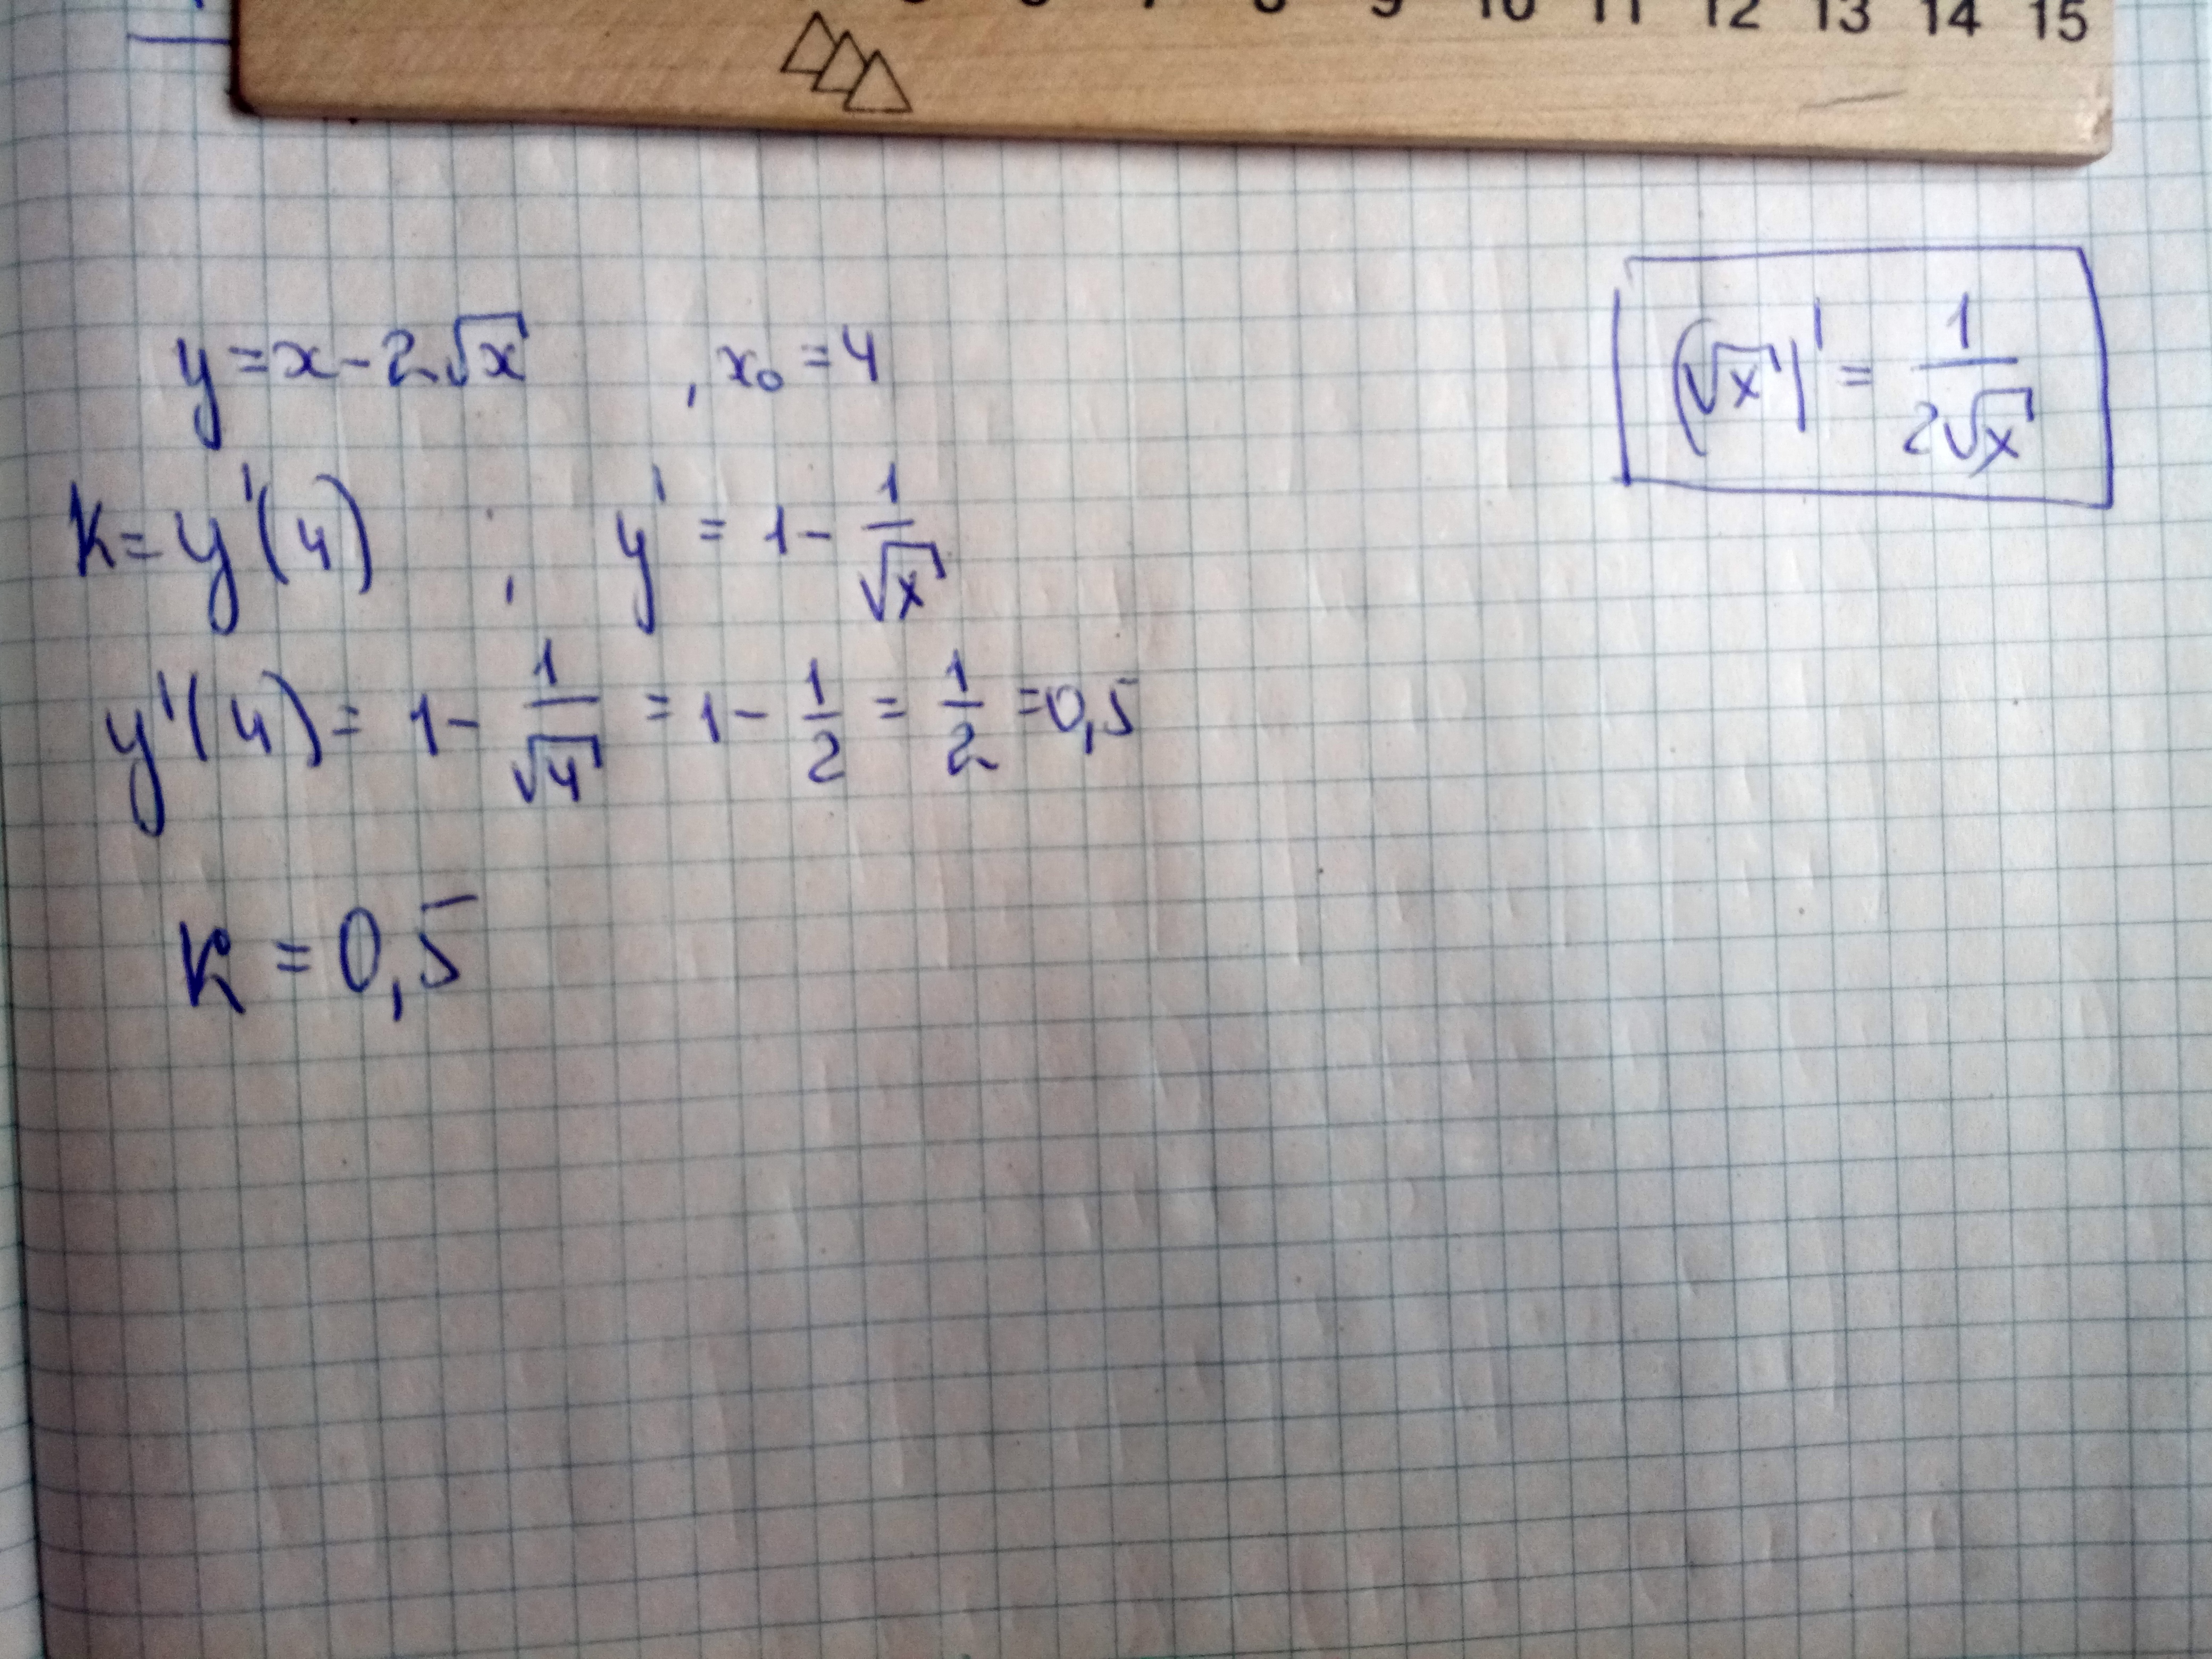 10 11 12 13 14 15
y = x - 2√x , x₀ = 4
(√x)' = 1/(2√x)
k = y'(4) , y' = 1 - 1/√x
y'(4) = 1 - 1/√4 = 1 - 1/2 = 1/2 = 0,5
k = 0,5